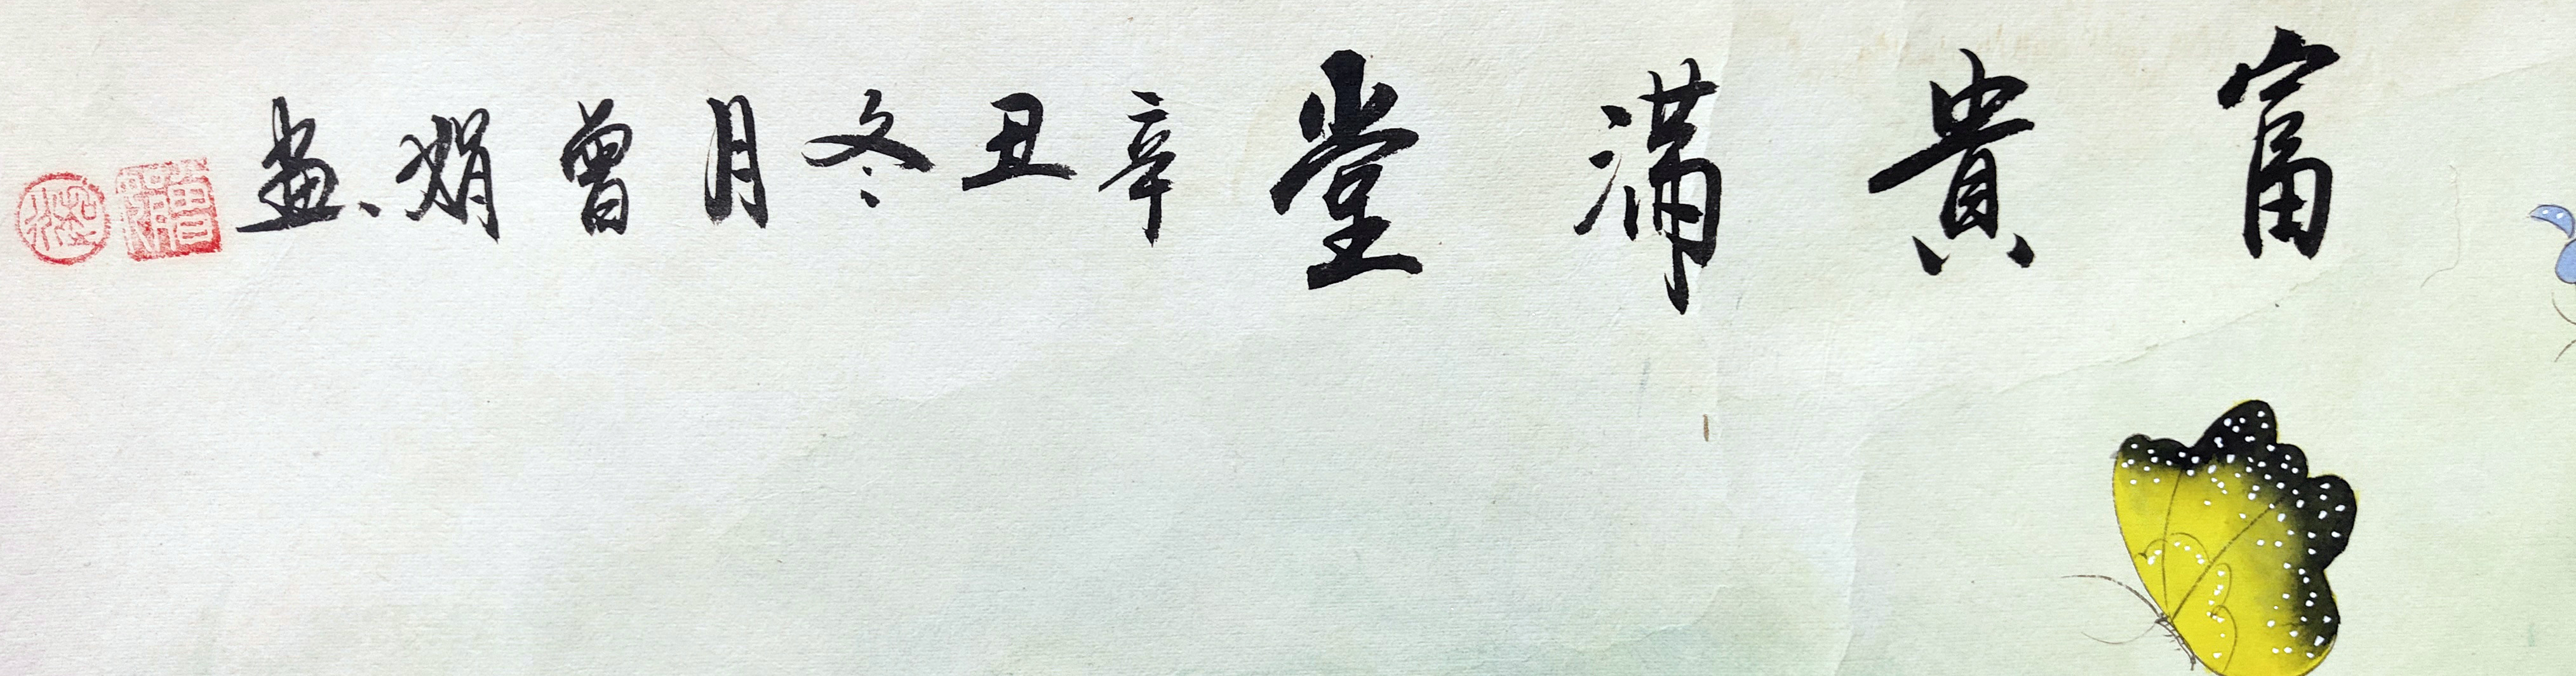 富貴滿堂 辛丑冬月曾娟畫